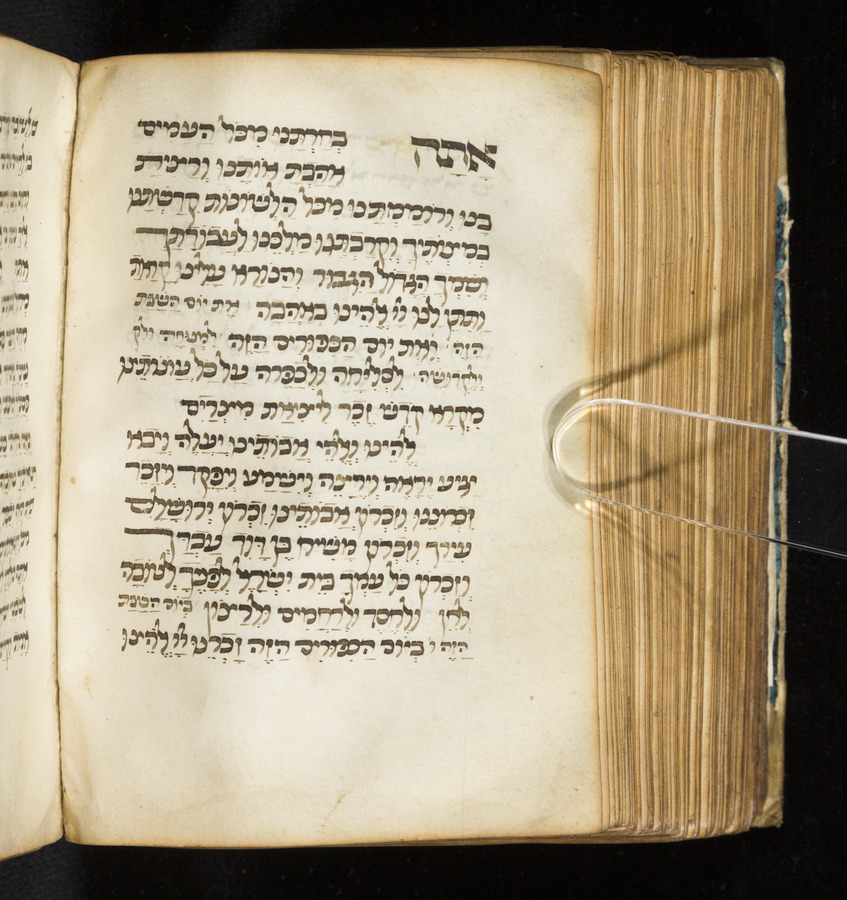 אַתָּה בְחַרְתָּנוּ מִכָּל הָעַמִּים
אָהַבְתָּ אוֹתָנוּ וְרָצִיתָ
בָּנוּ וְרוֹמַמְתָּנוּ מִכָּל הַלְּשׁוֹנוֹת קִדַּשְׁתָּנוּ
בְּמִצְוֹתֶיךָ וְקֵרַבְתָּנוּ מַלְכֵּנוּ לַעֲבוֹדָתֶךָ
וְשִׁמְךָ הַגָּדוֹל הַגִּבּוֹר וְהַנּוֹרָא עָלֵינוּ קָרָאתָ
וַתִּתֶּן לָנוּ יי אֱלֹהֵינוּ בְּאַהֲבָה את יום השבת
הזה וְאֶת יוֹם הַכִּפּוּרִים הַזֶּה
לִסְלִיחָה וּלְכַפָּרָה עַל כָּל עֲוֹנוֹתֵינוּ
מִקְרָא קֹדֶשׁ זֵכֶר לִיצִיאַת מִצְרַיִם
לֹהֵינוּ וֵאלֹהֵי אֲבוֹתֵינוּ יַעֲלֶה וְיָבֹא
יַגִּיעַ יֵרָאֶה וְיֵרָצֶה וְיִשָּׁמַע וְיִפָּקֵד וְיִזָּכֵר
זִכְרוֹנֵנוּ וְזִכְרוֹן אֲבוֹתֵינוּ זִכְרוֹן יְרוּשָׁלִַם
עִירָךְ וְזִכְרוֹן מָשִׁיחַ בֶּן דָּוִד עַבְדָּךְ
וְזִכְרוֹן כָּל עַמְּךָ בֵּית יִשְׂרָאֵל לְפָנֶיךָ לְטוֹבָה
לְחֵן וּלְחֶסֶד וּלְרַחֲמִים וּלְרָצוֹן ביום השבת
הזה ו בְּיוֹם הַכִּפּוּרִים הַזֶּה זָכְרֵנוּ יי אֱלֹהֵינוּ